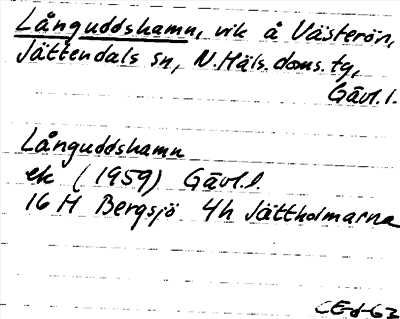 Långuddshamn, vik å Västerön,
Jättendals sn, N. Häls. doms. ty,
Gävl. l.
Långuddshamn
ek (1959) Gävl. l.
16 H Bergsjö 4h Jättholmarna
CEd-63